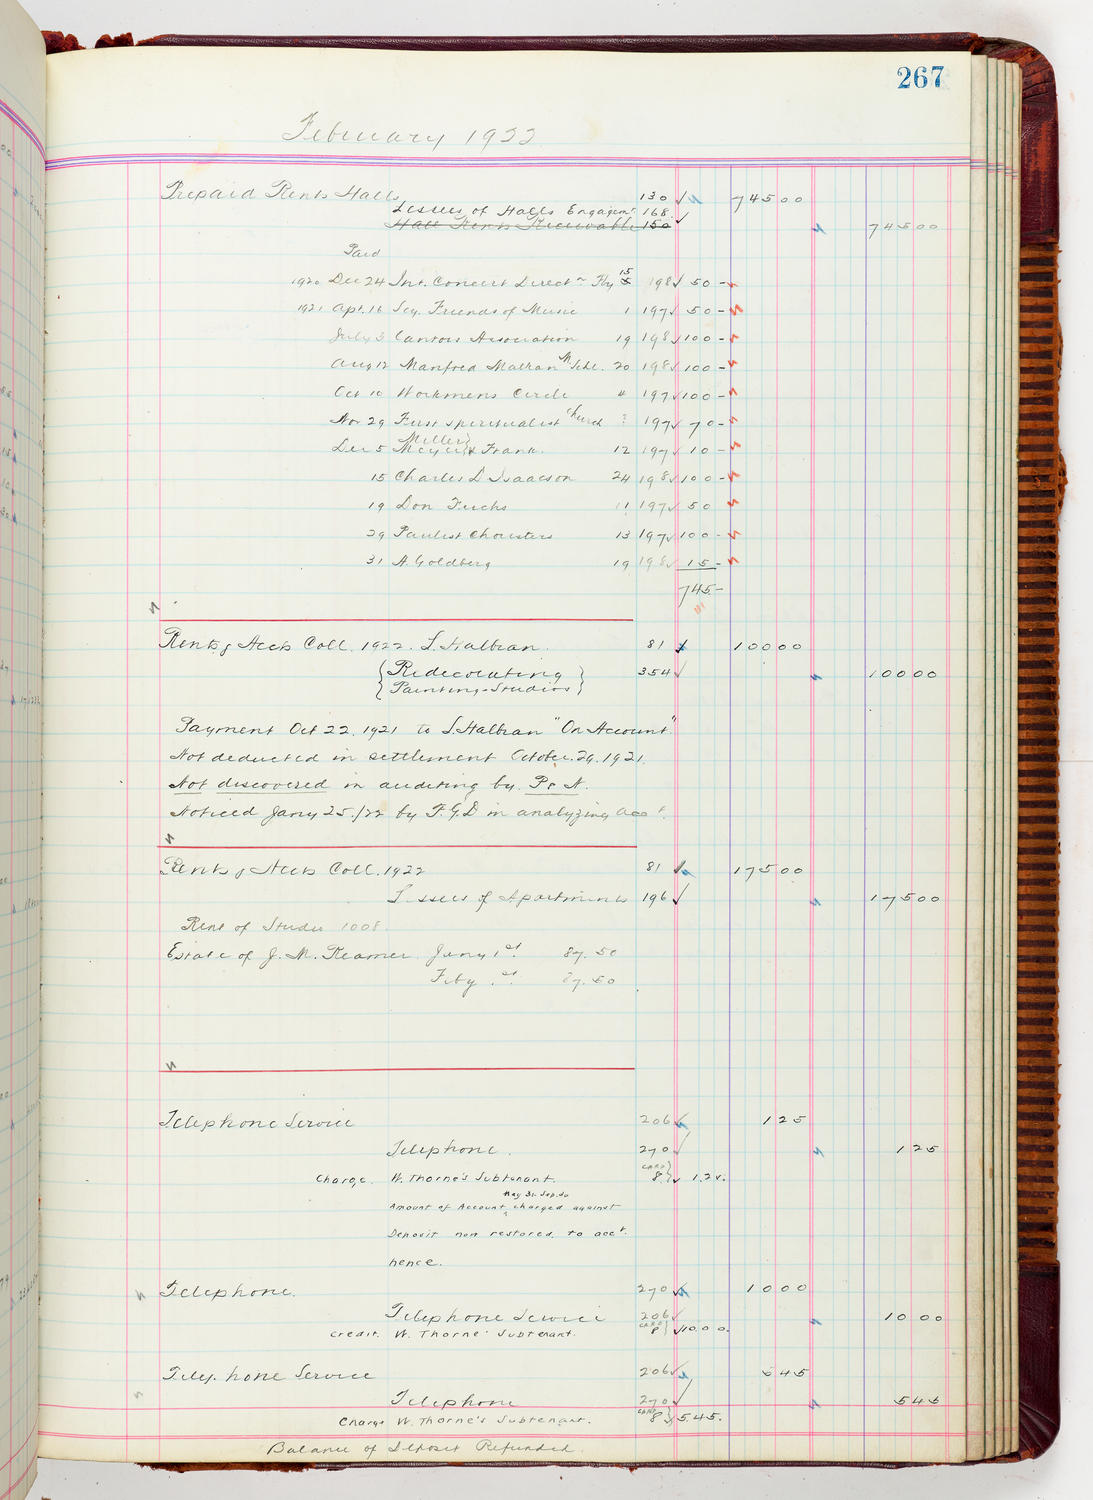 267
February 1922
Prepaid Rents Halls 130 745 00
Lessees of Halls Engagem't 168
Hall Rents Receivable 150 745 00
Paid
1920 Dec 24 Int. Concert Direct'n Fby 15 198 50 -
1921 Apr. 16 Soy. Friends of Music 1 197 50 -
July 3 Cantors Association 19 198 100 -
Aug 12 Manfred Malkan M. Schl. 20 198 100 -
Oct 10 Workmens Circle 4 197 100 -
Nov 29 First Spiritualist Church 197 70 -
Dec 5 Miller & Frank. 12 197 10 -
15 Charles D Isaacson 24 198 100 -
19 Don Fuchs 11 197 50
29 Paulist Choristers 13 197 100 -
31 A. Goldberg 19 198 15 -
745 -
Rents & Accts Coll. 1922. S. Halbran. 81 100 00
{ Redecorating } 354 100 00
{ Painting-Studios }
Payment Oct 22. 1921 to S. Halbran "On Account"
Not deducted in settlement October. 29. 1921.
Not discovered in auditing by. P & N.
Noticed Jany 25./22 by F.G.D in analyzing acc't.
Rents & Accts Coll. 1922 81 175 00
Lessees of Apartments 196 175 00
Rent of Studio 1008.
Estate of J. M. Reamer. Jany 1st 87. 50
Feby 1st 87. 50
Telephone Service 206 1 25
Telephone. 270 1 25
Charge. W. Thorne's Subtenant. CARD 8. } 1.25.
May 31. Sep. 30
Amount of Account charged against
Deposit non restored, to acc't.
hence.
Telephone. 270 10 00
Telephone Service 206 10 00
credit. W. Thorne's Subtenant. CARD 8 } 10.00.
Telephone Service 206 5 45
Telephone 270 5 45
Charge W. Thorne's Subtenant. CARD 8 } 5.45.
Balance of Deposit Refunded.